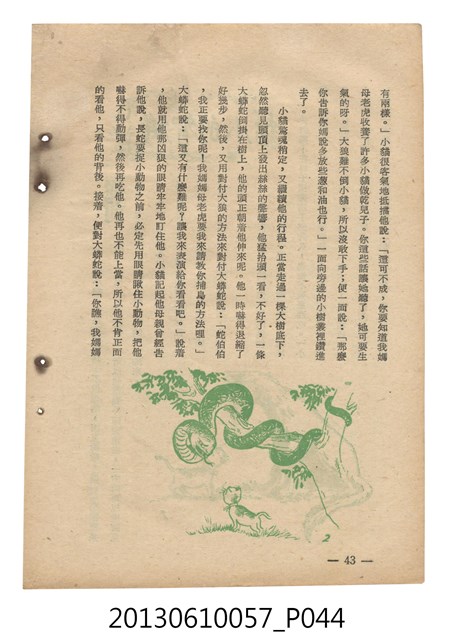 有兩樣。」小貓很客氣地抵擋他說：「這可不成，你要知道我媽
母老虎收養了許多小貓做乾兒子。你這些話讓她聽了，她可要生
氣的呀。」大狼難不倒小貓，所以沒敢下手；便一面說：「那麼
你告訴你媽說多放些葱和油也行。」一面向旁邊的小樹叢裡鑽進
去了。
小貓驚魂稍定，又繼續他的行程。正當走過一棵大樹底下，
忽然聽見頭頂上發出絲絲的聲響，他猛抬頭一看，不好了，一條
大蟒蛇倒掛在樹上，他的頭正朝着他伸來呢。他一時嚇得退縮了
好幾步，然後，又用對付大狼的方法來對付大蟒蛇說：「蛇伯伯
，我正要找你呢！我媽媽母老虎要我來請教你捕鳥的方法哩。」
大蟒蛇說：「這又有什麼難呢？讓我來表演給你看看吧。」說着
，他就用他那凶狠的眼睛牢牢地盯住他。小貓記起他母親曾經告
訴他說，長蛇要捉小動物之前，必定先用眼睛瞅住小動物，把他
嚇得不得動彈，然後再吃他。他再也不能上當，所以他不肯正面
的看他，只看他的背後。接着，便對大蟒蛇說：「你瞧，我媽媽
2
— 43 —
20130610057_P044